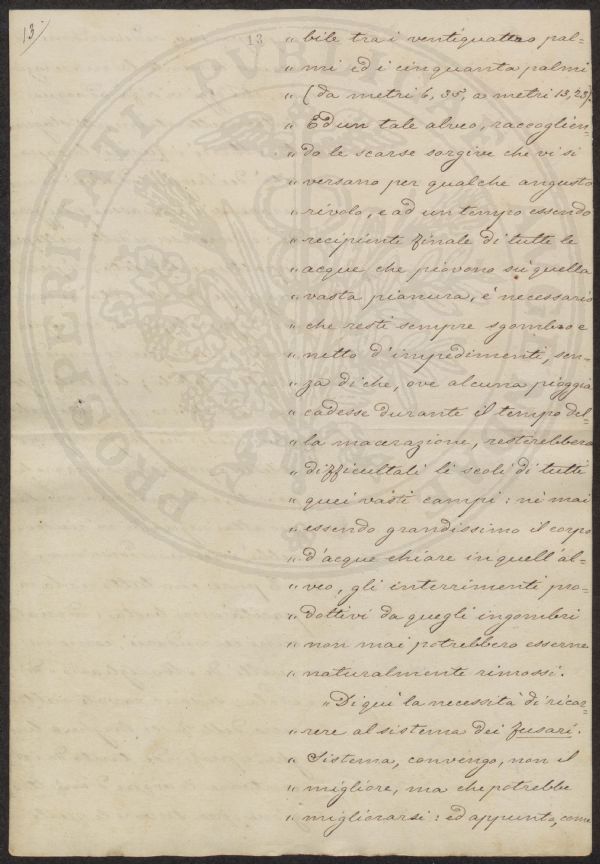 13
13
„ bile tra i ventiquattro pal=
„ mi ed i cinquanta palmi
„ (da metri 6,35, a metri 13,23).
„ Ed un tale alveo, raccoglien=
„ do le scarse sorgive che vi si
„ versano per qualche angusto
„ rivolo, e ad un tempo essendo
„ recipiente finale di tutte le
„ acque che piovono su quella
„ vasta pianura, é necessario
„ che resti sempre sgombro e
„ netto d'impedimenti, sen=
„ za di che, ove alcuna pioggia
„ cadesse durante il tempo del=
„ la macerazione, resterebbero
„ difficultati li scoli di tutti
„ quei vasti campi: né mai
„ essendo grandissimo il corpo
„ d'acque chiare in quell'al=
„ veo, gli interrimenti pro=
„ dottivi da quegli ingombri
„ non mai potrebbero esserne
„ naturalmente rimossi.
„ Di qui la necessità di ricor=
„ rere al sistema dei fusari.
„ Sistema, convengo, non il
„ migliore, ma che potrebbe
„ migliorarsi: ed appunto, come
PROSPERITATI PUB